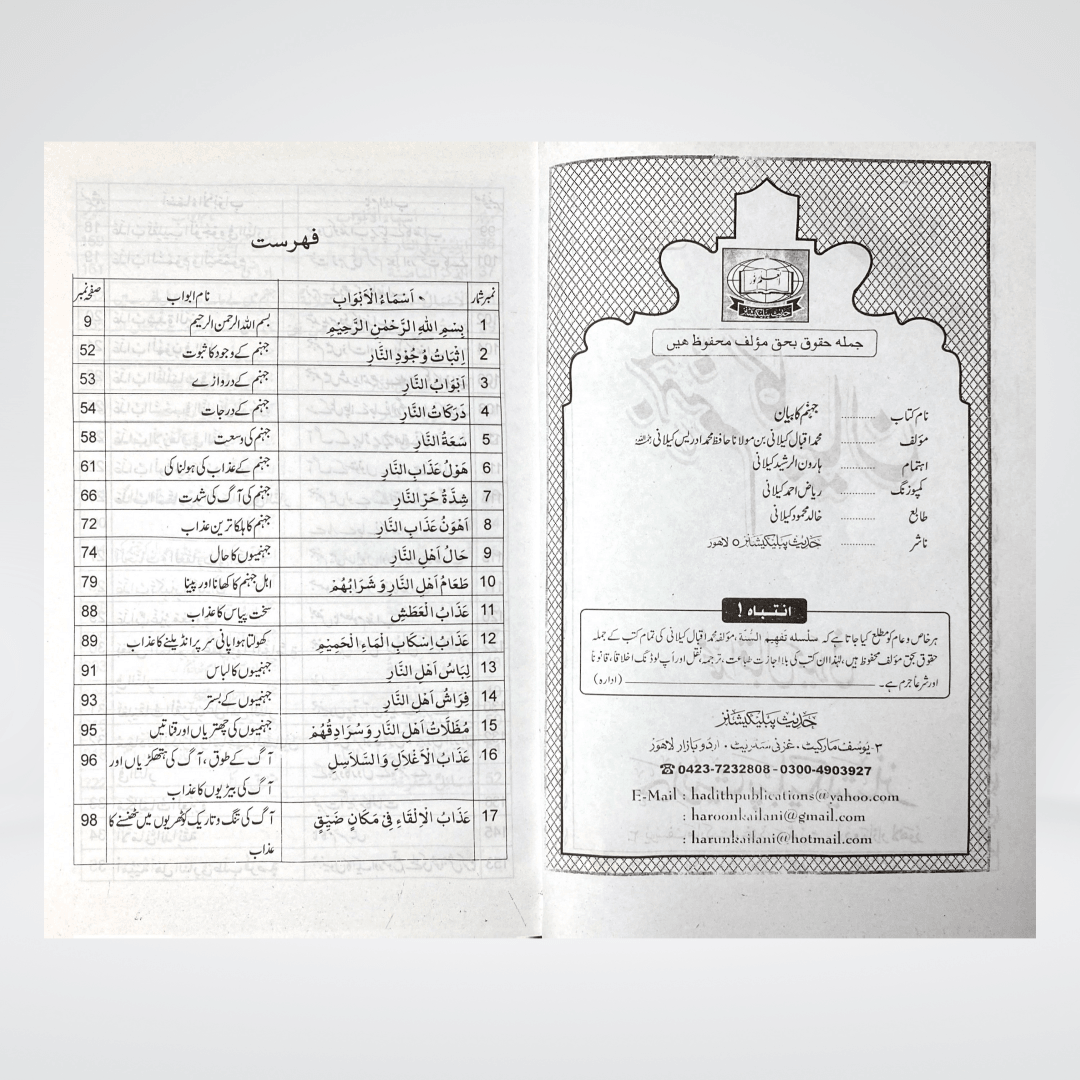 جملہ حقوق بحق مؤلف محفوظ ھیں
نام کتاب ............ جہنم کا بیان
مؤلف ............ محمد اقبال کیلانی بن مولانا حافظ محمد ادریس کیلانی رحمہ اللہ
اہتمام ............ ہارون الرشید کیلانی
کمپوزنگ ............ ریاض احمد کیلانی
طابع ............ خالد محمود کیلانی
ناشر ............ حدیث پبلیکیشنز ٥ لاهور
انتباہ !
ہر خاص و عام کو مطلع کیا جاتا ہے کہ سلسلہ تفہیم السنۃ، مؤلفہ محمد اقبال کیلانی کی تمام کتب کے جملہ
حقوق بحق مؤلف محفوظ ہیں، لہٰذا ان کتب کی بلا اجازت طباعت، ترجمہ، نقل اور اپ لوڈنگ اخلاقاً، قانوناً
اور شرعاً جرم ہے۔ (ادارہ)
حدیث پبلیکیشنز
٣- یوسف مارکیٹ ٠ غزنی سٹریٹ ٠ اردو بازار لاهور
☎ 0423-7232808 - 0300-4903927
E-Mail : hadithpublications@yahoo.com
: haroonkailani@gmail.com
: harunkailani@hotmail.com
فہرست
نمبر شمار اَسْمَاءُ الْاَبْوَابِ نام ابواب صفحہ نمبر
1 بِسْمِ اللّٰهِ الرَّحْمٰنِ الرَّحِيْمِ بسم اللہ الرحمن الرحیم 9
2 اِثْبَاتُ وُجُوْدِ النَّارِ جہنم کے وجود کا ثبوت 52
3 اَبْوَابُ النَّارِ جہنم کے دروازے 53
4 دَرَكَاتُ النَّارِ جہنم کے درجات 54
5 سَعَةُ النَّارِ جہنم کی وسعت 58
6 هَوْلُ عَذَابِ النَّارِ جہنم کے عذاب کی ہولناکی 61
7 شِدَّةُ حَرِّ النَّارِ جہنم کی آگ کی شدت 66
8 اَهْوَنُ عَذَابِ النَّارِ جہنم کا ہلکا ترین عذاب 72
9 حَالُ اَهْلِ النَّارِ جہنمیوں کا حال 74
10 طَعَامُ اَهْلِ النَّارِ وَ شَرَابُهُمْ اہل جہنم کا کھانا اور پینا 79
11 عَذَابُ الْعَطَشِ سخت پیاس کا عذاب 88
12 عَذَابُ اِسْكَابِ الْمَاءِ الْحَمِيْمِ کھولتا ہوا پانی سر پر انڈیلنے کا عذاب 89
13 لِبَاسُ اَهْلِ النَّارِ جہنمیوں کا لباس 91
14 فِرَاشُ اَهْلِ النَّارِ جہنمیوں کے بستر 93
15 مُظَلَّاتُ اَهْلِ النَّارِ وَ سُرَادِقُهُمْ جہنمیوں کی چھتریاں اور قناتیں 95
16 عَذَابُ الْاَغْلَالِ وَ السَّلَاسِلِ آگ کے طوق، آگ کی ہتھکڑیاں اور 96
آگ کی بیڑیوں کا عذاب
17 عَذَابُ الْاِلْقَاءِ فِىْ مَكَانٍ ضَيِّقٍ آگ کی تنگ و تاریک کوٹھریوں میں ٹھنسنے کا 98
عذاب